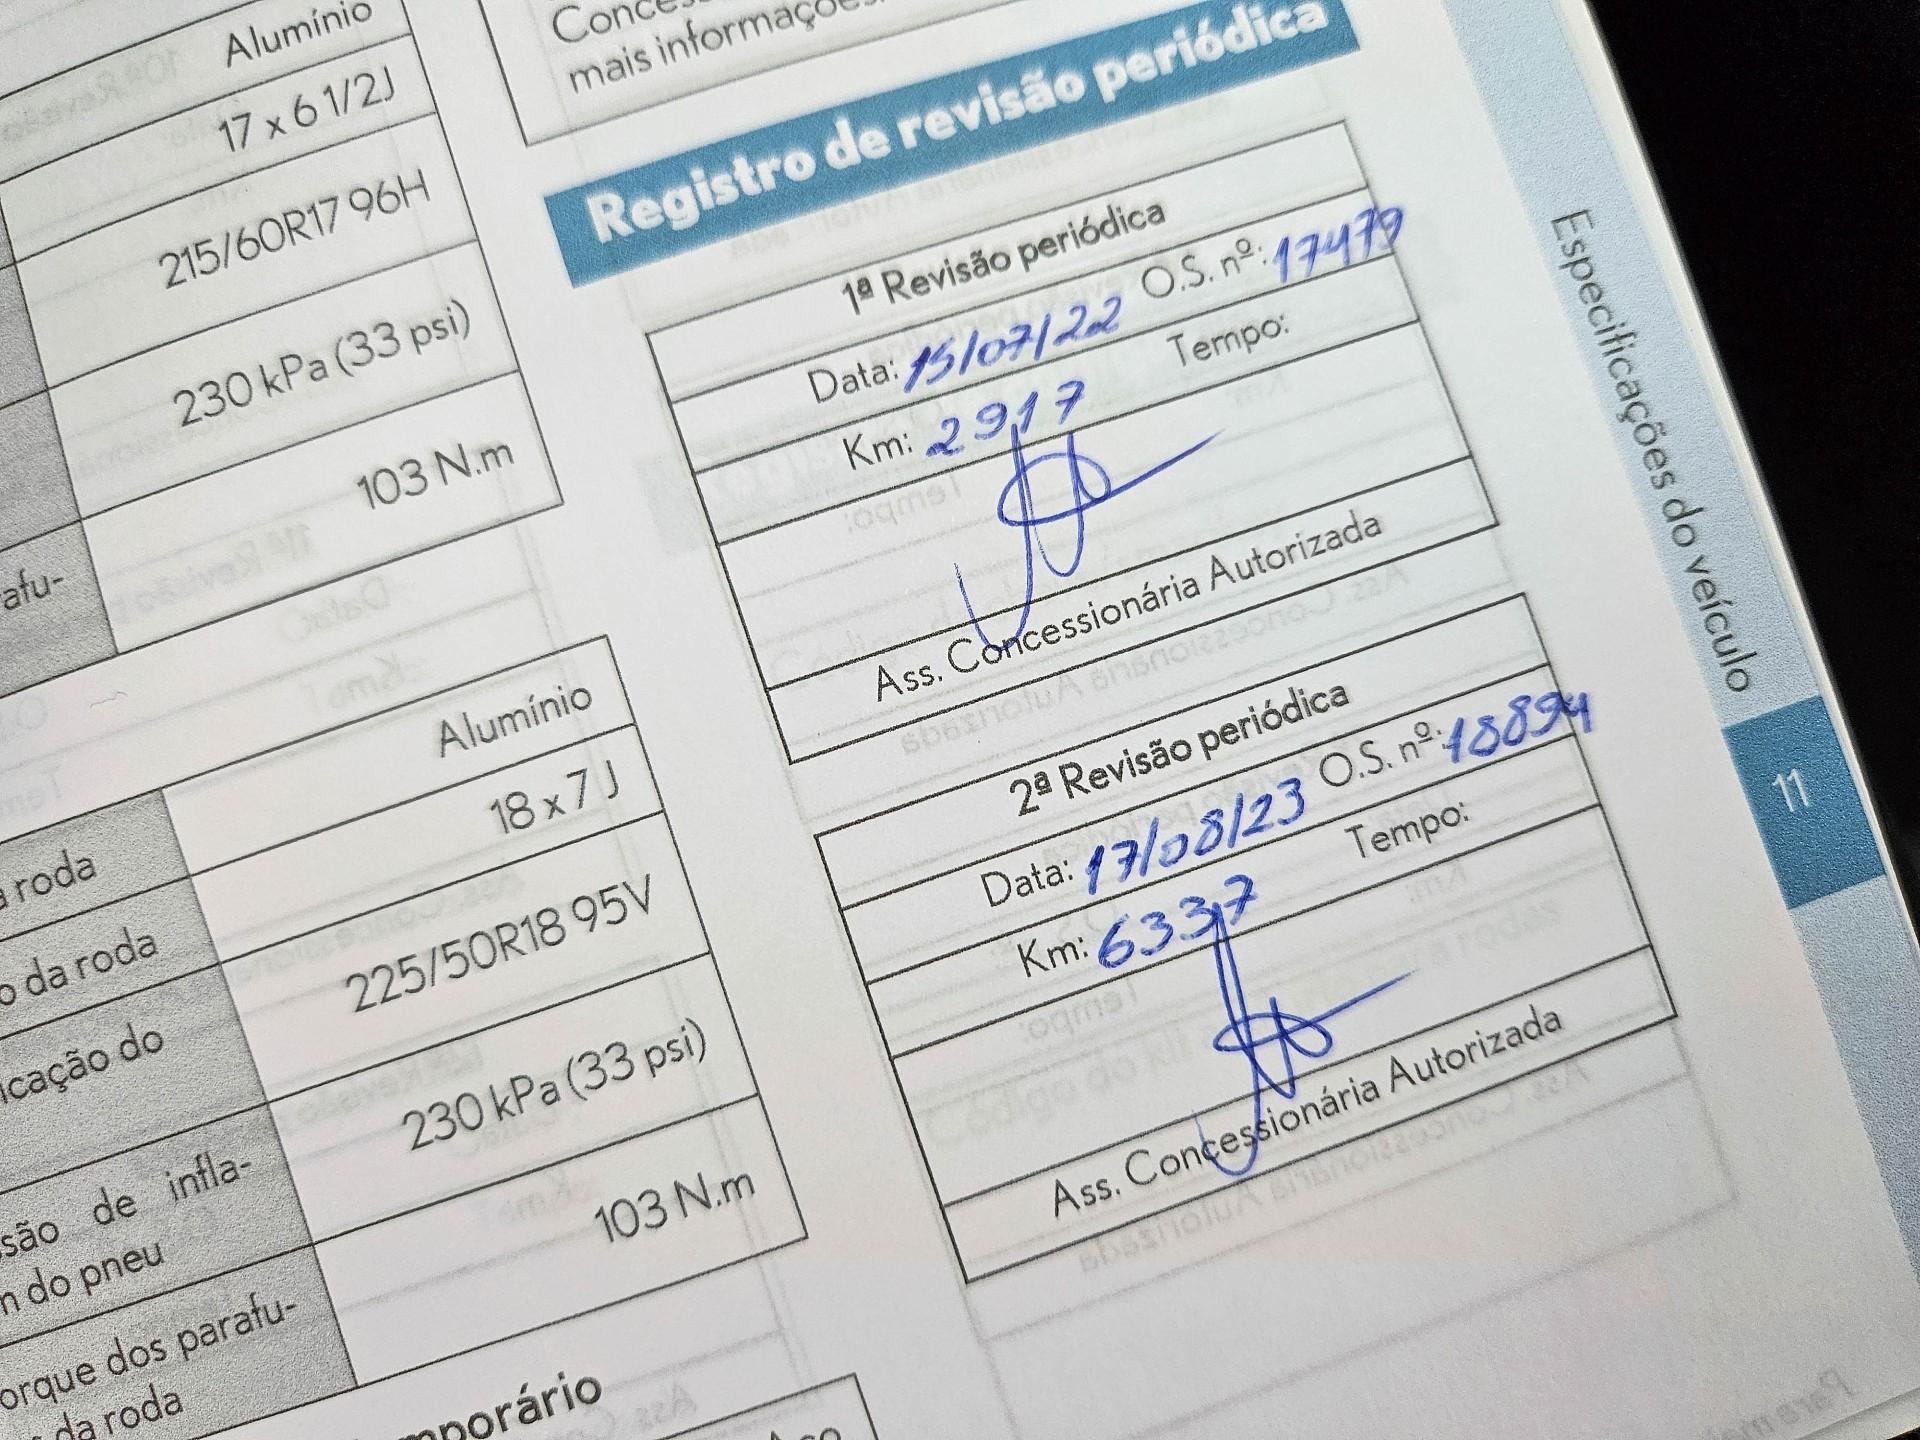 Alumínio
17 x 6 1/2J
215/60R17 96H
230 kPa (33 psi)
103 N.m
afu-
Alumínio
a roda
18 x 7 J
o da roda
225/50R18 95V
icação do
230 kPa (33 psi)
são de infla-
n do pneu
103 N.m
orque dos parafu-
da roda
mporário
Aço
mais informações.
Registro de revisão periódica
1ª Revisão periódica
Data: 15/07/22 O.S. nº: 17479
Km: 2917 Tempo:
Ass. Concessionária Autorizada
2ª Revisão periódica
Data: 17/08/23 O.S. nº: 18894
Km: 6337 Tempo:
Ass. Concessionária Autorizada
Especificações do veículo
11